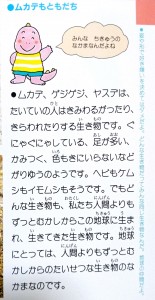 ●ムカデもともだち
みんな ちきゅうの
なかまなんだよね
●ムカデ、ゲジゲジ、ヤスデは、
たいていの人はきみわるがったり、
きらわれたりする生き物です。ぐ
にゃぐにゃしている、足が多い、
かみつく、色もきにいらないなど
がりゆうのようです。ヘビもケム
シもイモムシもそうです。でもど
んな生き物も、わたしたち人間よりも
ずっとむかしからこの地球に生ま
れ、生きてきた生き物です。地球
にとっては、人間よりもずっとむ
かしからのたいせつな生き物のな
かまなのです。